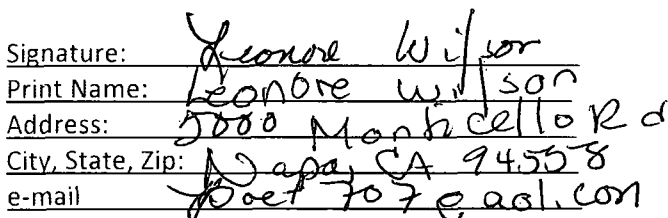 Signature: Leonore Wilson
Print Name: Leonore Wilson
Address: 5000 Monticello Rd
City, State, Zip: Napa, CA 94558
e-mail Poet707@aol.com